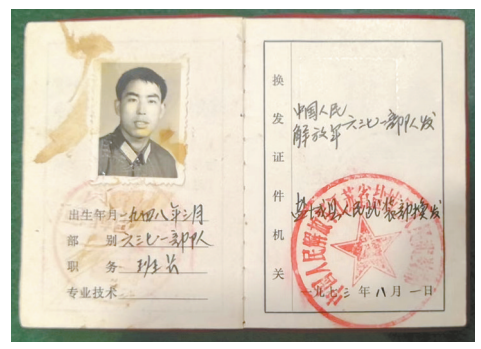 出生年月一九四八年三月
部 别六三七一部队
职 务 班长
专业技术
换发证件机关
中国人民
解放军六三七一部队发
盐城县人民武装部换发
一九七三年八月一日